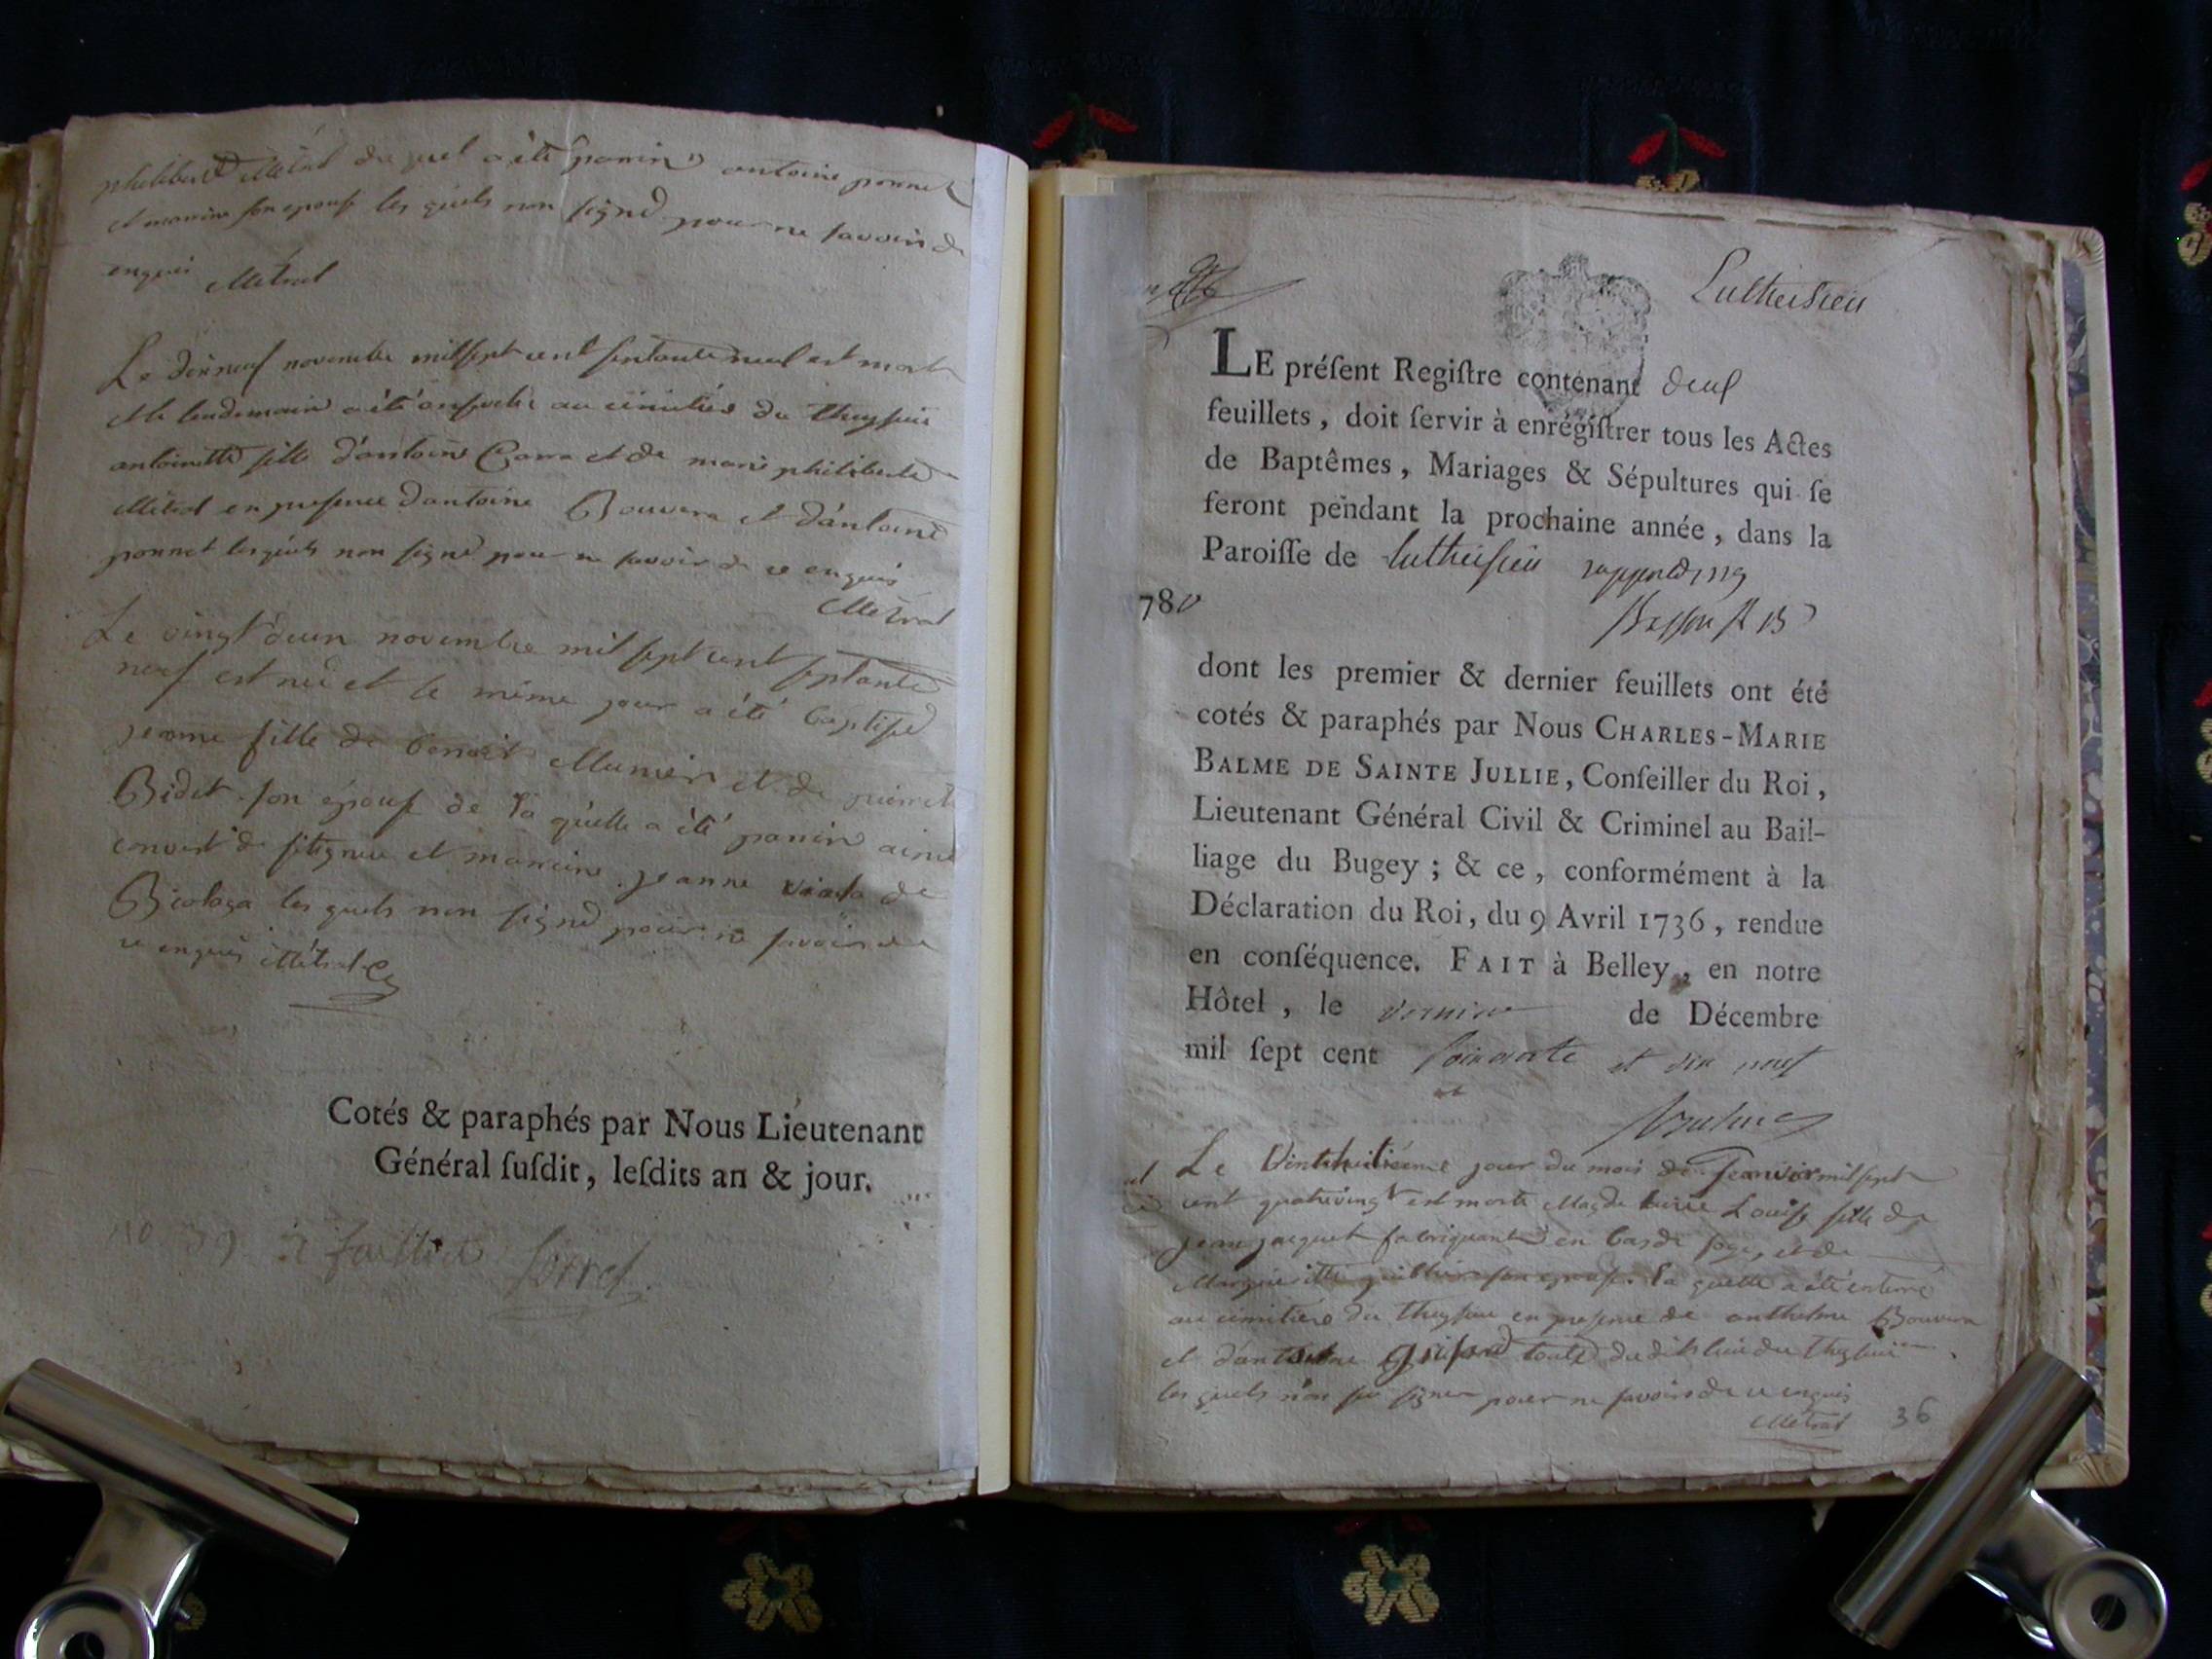 philibert Métral du quel a été parrin antoine ponnet
et marrine son epouse les quels non signé pour ne savoir de
enquis Métral
Le dixneuf novembre milsept cent septante neuf est mort
et le lendemain a été ensevelie au cimitiére du thuysieu
antoinette fille d'antoine Carra et de marie philiberte
Métral en presence d'antoine Bouvera et d'antoine
ponnet les quels non signé pour ne savoir de ce enquis
Métral
Le vingt deux novembre mil sept cent septante
neuf est née et le même jour a été baptisé
jeanne fille de benoit Munier et de pierrette
Bidet son épouse de la quelle a été parrin aimé
convert de et marraine jeanne de
les quels non signé pour ne savoir de
ce enquis Métral
Cotés & paraphés par Nous Lieutenant
Général ſuſdit, leſdits an & jour.
Lutheisieu
LE préſent Regiſtre contenant deux
feuillets, doit ſervir à enrégiſtrer tous les Actes
de Baptêmes, Mariages & Sépultures qui ſe
feront pendant la prochaine année, dans la
Paroiſſe de lutheisieu
780
dont les premier & dernier feuillets ont été
cotés & paraphés par Nous CHARLES-MARIE
BALME DE SAINTE JULLIE, Conſeiller du Roi,
Lieutenant Général Civil & Criminel au Bail-
liage du Bugey; & ce, conformément à la
Déclaration du Roi, du 9 Avril 1736, rendue
en conſéquence. FAIT à Belley, en notre
Hôtel, le dernier de Décembre
mil ſept cent soixante et dix neuf
Balme
Le Vinthuitiéme jour du mois de Janvier milsept
cent quatrevingt est morte Magdelaine Louise fille de
jean jacquet fabriquant en bas de soye, et de
Margueritte son epouse. la quelle a été enterré
au cimitiére du thuysieu en presence de anthelme Bouvera
et d'antoine touts du dit lieu du thuysieu
les quels non su signer pour ne savoir de ce enquis
Métral
36